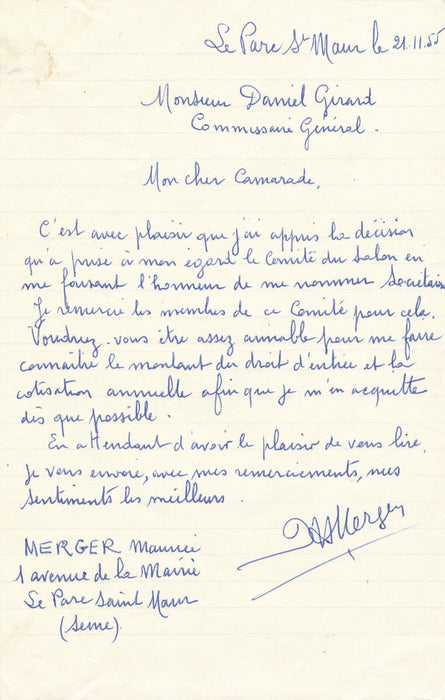 Le Parc St Maur le 21.11.55
Monsieur Daniel Girard
Commissaire Général.
Mon cher Camarade,
C'est avec plaisir que j'ai appris la décision
qu'a prise à mon égard le Comité du Salon en
me faisant l'honneur de me nommer Sociétaire
Je remercie les membres de ce Comité pour cela.
Voudriez-vous être assez aimable pour me faire
connaître le montant du droit d'entrée et la
cotisation annuelle afin que je m'en acquitte
dès que possible.
En attendant d'avoir le plaisir de vous lire,
Je vous envoie, avec mes remerciements, mes
sentiments les meilleurs.
Merger
MERGER Maurice
1 avenue de la Mairie
Le Parc Saint Maur
(Seine)